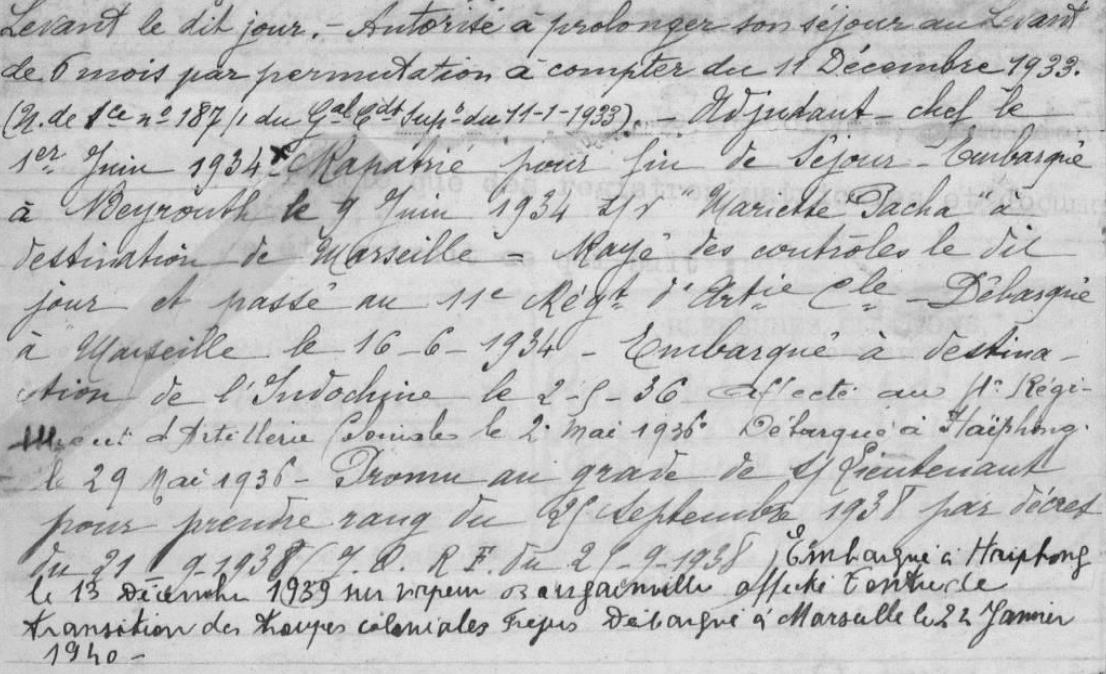 Levant le dit jour. - Autorisé à prolonger son séjour au Levant
de 6 mois par permutation à compter du 11 Décembre 1933.
(N. de sce n° 187/1 du Gal Cdt Supr du 11-1-1933). - Adjudant-chef le
1er Juin 1934 x Rapatrié pour fin de séjour - Embarqué
à Beyrouth le 9 Juin 1934 s/v Mariette Pacha à
destination de Marseille = Rayé des contrôles le dit
jour et passé au 11e Régt d'Artie Cle - Débarqué
à Marseille le 16-6-1934 - Embarqué à destina-
tion de l'Indochine le 2-5-36 affecté au 4e Régi-
ment d'Artillerie Coloniale le 2 mai 1936 Débarqué à Haïphong.
le 29 Mai 1936 - Promu au grade de S/Lieutenant
pour prendre rang du 25 septembre 1938 par décret
du 21-9-1938 (J.O.R.F. du 25-9-1938) Embarqué à Haiphong
le 13 Décembre 1939 sur vapeur Bougainville affecté Centre de
transition des troupes coloniales Fréjus Débarqué à Marseille le 22 Janvier
1940 -